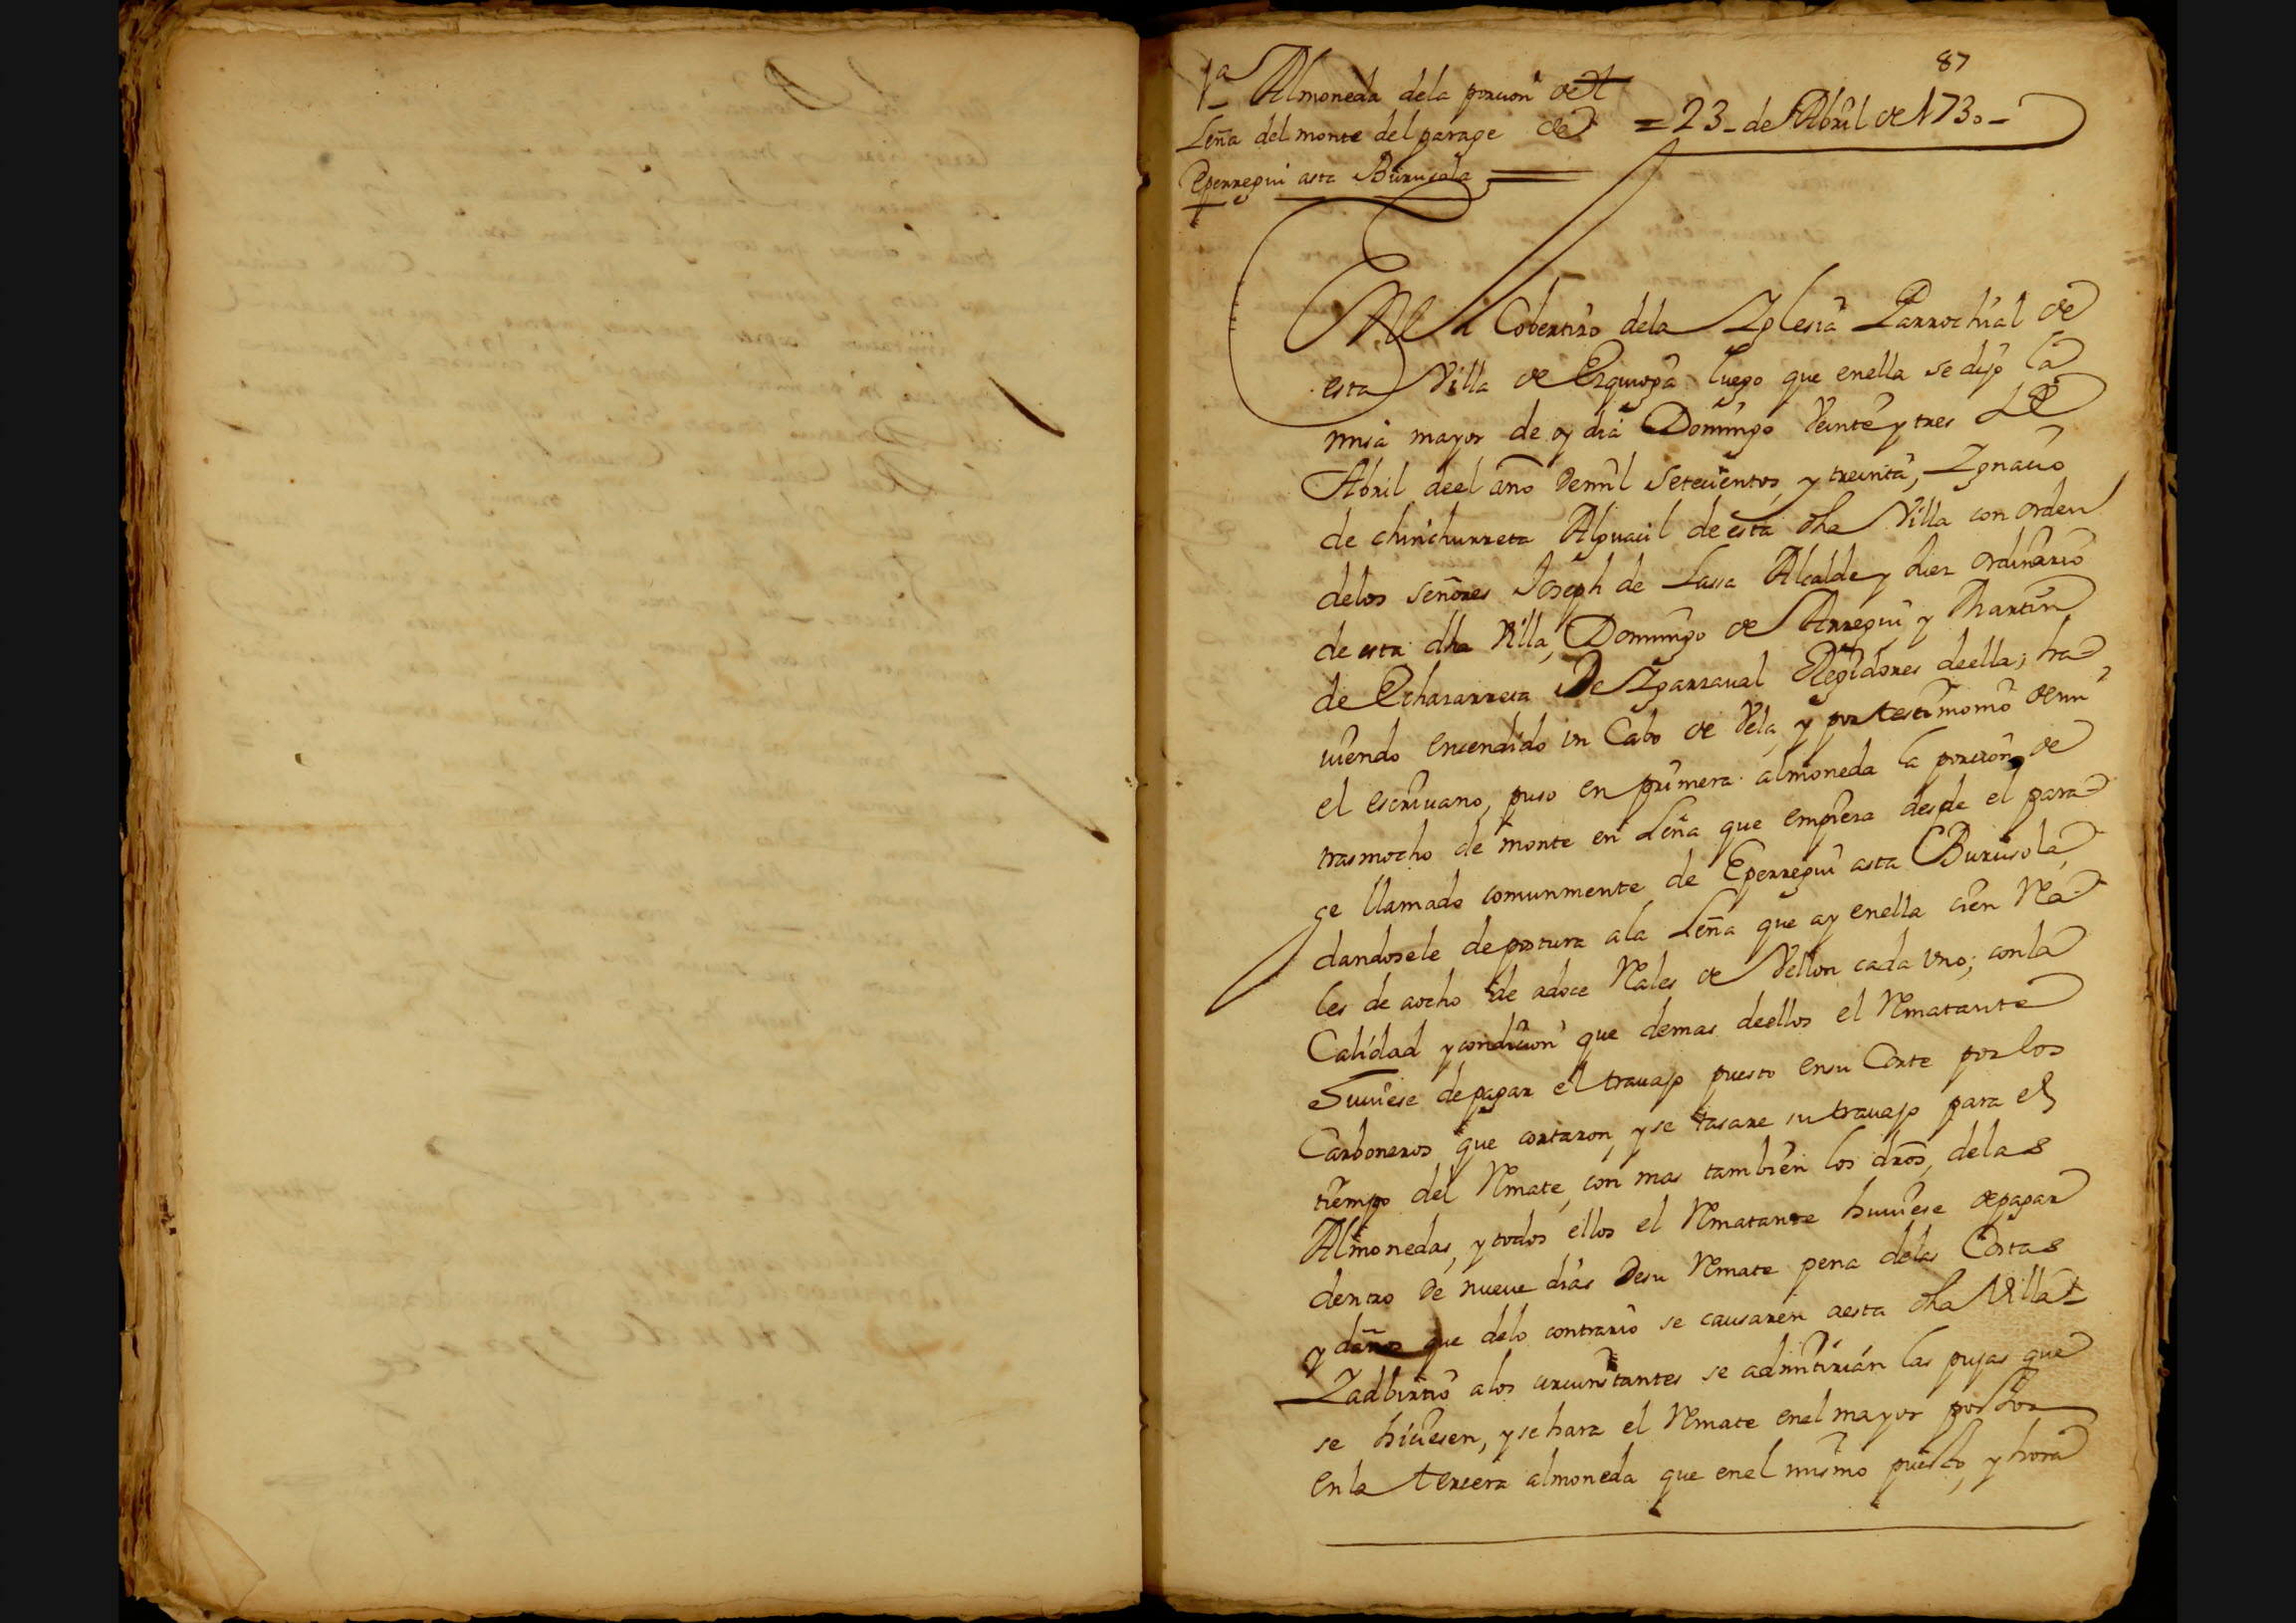 87
1ª Almoneda dela porcion de
Leña del monte del parage de
Eperregui asta Burusola
= 23 - de Abril de 1730 -
En el Cobertizo dela Yglesia Parrochial de
esta Villa de Ezquioga luego que enella se dijo la
misa mayor de oy dia Domingo Veinte y tres de
Abril deel año demil setecientos, y treinta, Ygnacio
de chinchurreta Alguacil de esta dha Villa con orden
delos señores Joseph de Lassa Alcalde y Juez ordinario
de esta dha Villa, Domingo de Arregui y Martin
de Echazarreta De Ygarzaval Regidores deella; ha
uiendo encendido un Cabo de Vela, y por testimonio demi
el escriuano, puso en primera almoneda la porcion de
trasmocho de monte en Leña que empieza desde el para
ge llamado comunmente de Eperregui asta Burusola,
dandosele depostura ala Leña que ay enella cien Rea
les de aocho de adoce Rales de Vellon cada uno; conla
Calidad y condicion que demas deellos el Rmatante
huuiese depagar el trauajo puesto ensu Corte por los
Carboneros que cortaron, y se tasare su trauajo para el
tiempo del Rmate, con mas tambien los dros, delas
Almonedas, y todos ellos el Rmatante huuiese depagar
dentro de nueue dias desu Rmate pena delas Costas
y daños que delo contrario se causaren aesta dha Villa
Yadbirtio alos circunstantes se admitirián las pujas que
se hiciesen, y se hara el Rmate enel mayor postor
enla tercera almoneda que enel mismo puesto, y hora